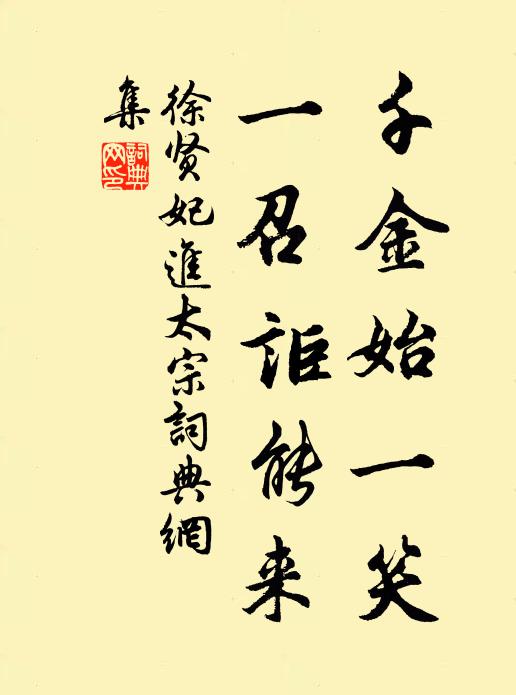 千金始一笑
一召詎能来
徐贤妃進太宗詞典網
集
詞典
网印